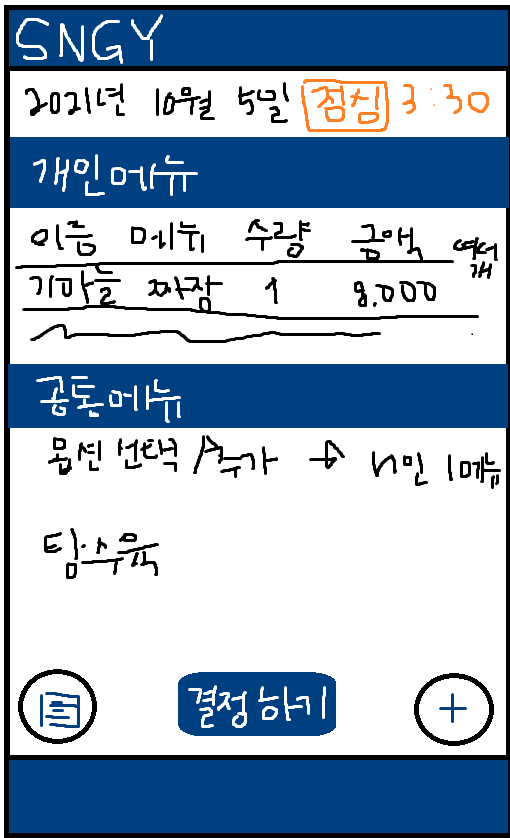 SNGY
2021년 10월 5일 점심 3:30
개인메뉴
이름 메뉴 수량 금액 여서
개
기마늘 짜장 1 8.000
공톤메뉴
옵션 선택/추가 → n인 1메뉴
탕수육
결정하기
+